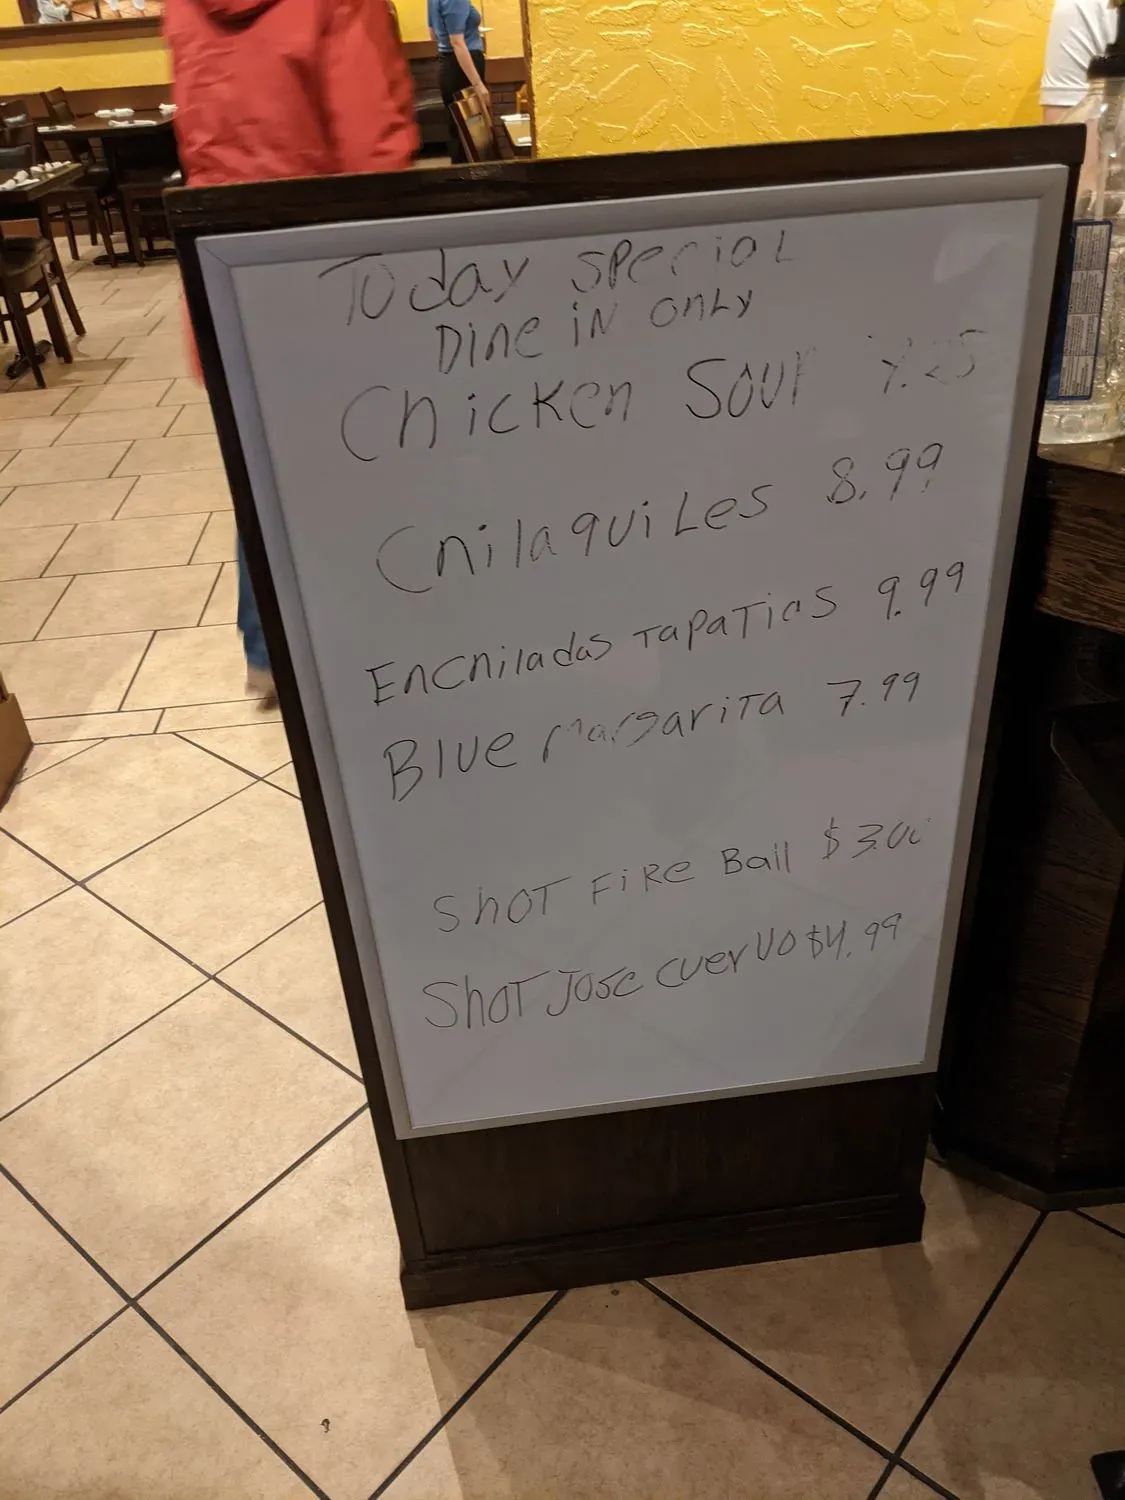 Today special
Dine in only
Chicken Soup
Chilaquiles 8.99
Enchiladas Tapatias 9.99
Blue margarita 7.99
Shot Fire Ball $3.00
Shot Jose cuervo $4.99